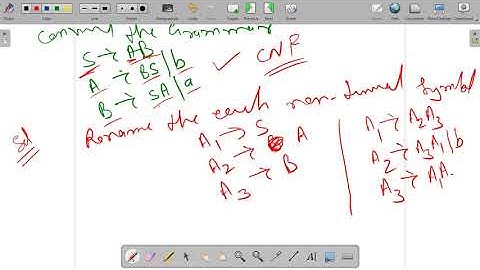 Convert the Grammar
S → AB
A → BS | b
B → SA | a
✓ CNF
Sol Rename the each non-terminal symbol
A1 → S
A2 → A
A3 → B
A1 → A2A3
A2 → A3A1 | b
A3 → A1A